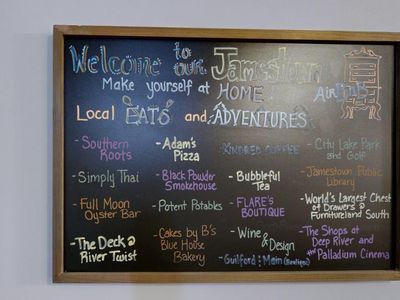 Welcome to our Jamestown
Make yourself at HOME! AirBNB
Local EATS and ADVENTURES
- Southern Roots
- Simply Thai
- Full Moon Oyster Bar
- The Deck @ River Twist
- Adam's Pizza
- Black Powder Smokehouse
- Potent Potables
- Cakes by B's Blue House Bakery
- KINDRED COFFEE
- Bubbleful Tea
- FLARE'S BOUTIQUE
- Wine & Design
- Guilford & Main (Boutique)
- City Lake Park and Golf
- Jamestown Public Library
- World's Largest Chest of Drawers @ Furnitureland South
- The Shops at Deep River and the Palladium Cinema